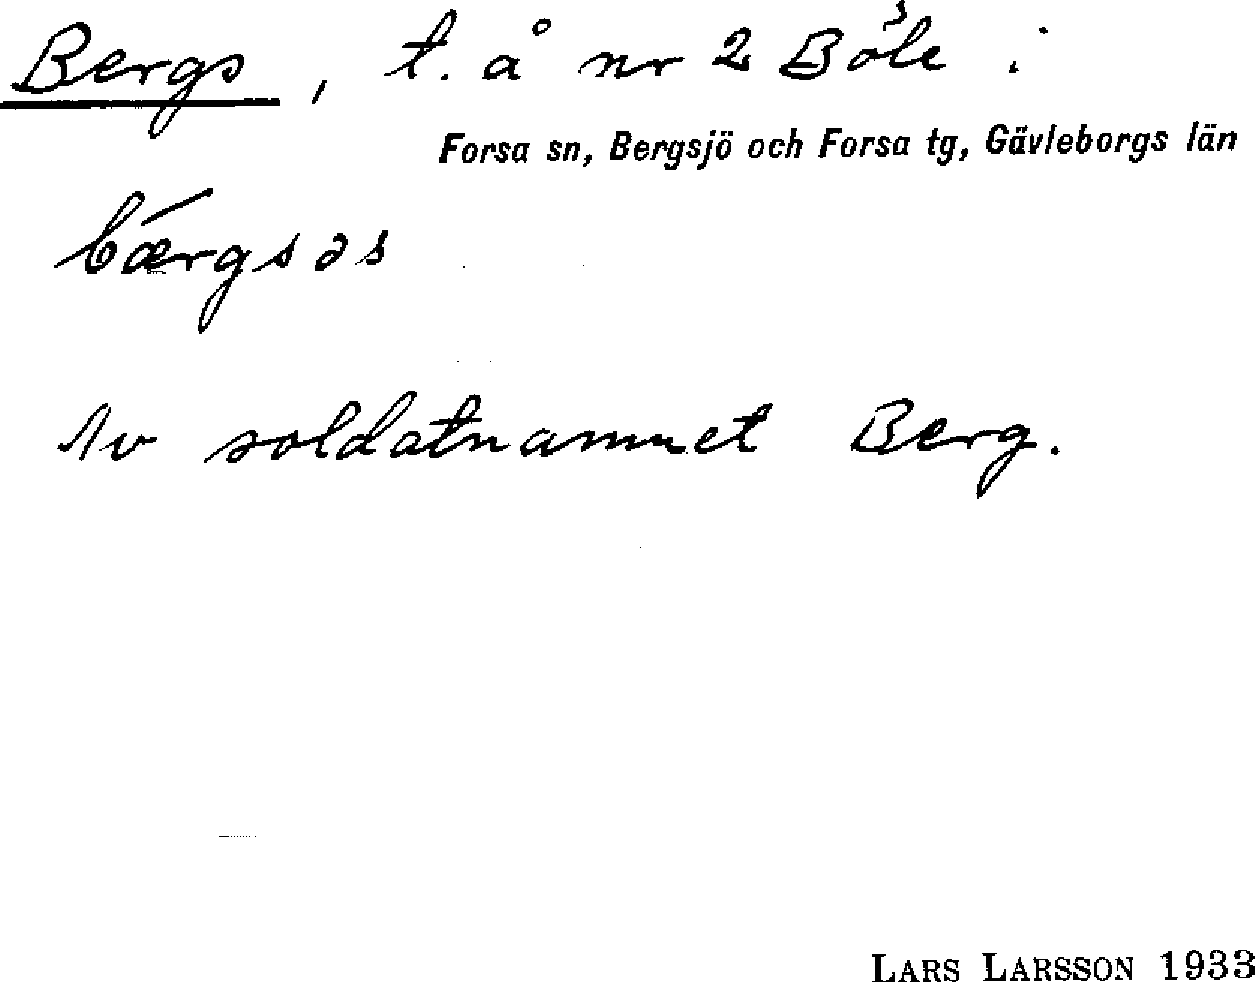 Bergs, t. å nr 2 Böle i
Forsa sn, Bergsjö och Forsa tg, Gävleborgs län
bærgsəs
Av soldatnamnet Berg.
LARS LARSSON 1933